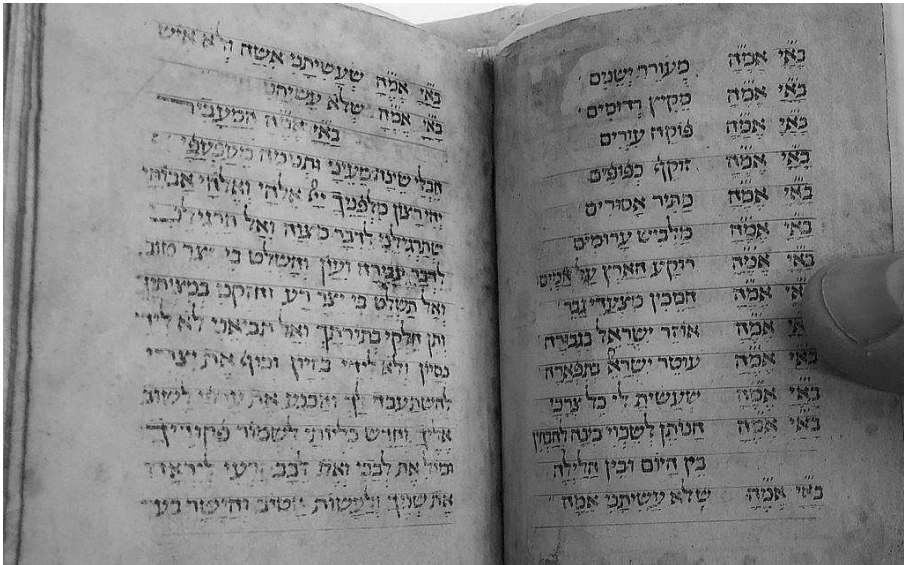 בא״י אמ״ה מעורר ישנים
בא״י אמ״ה מקיץ רדומים
בא״י אמ״ה פוקח עורים
בא״י אמ״ה זוקף כפופים
בא״י אמ״ה מתיר אסורים
בא״י אמ״ה מלביש ערומים
בא״י אמ״ה רוקע הארץ על המים
בא״י אמ״ה המכין מצעדי גבר
בא״י אמ״ה אוזר ישראל בגבורה
בא״י אמ״ה עוטר ישראל בתפארה
בא״י אמ״ה שעשית לי כל צרכי
בא״י אמ״ה הנותן לשכוי בינה להבחין
בין היום ובין הלילה
בא״י אמ״ה שלא עשיתני אמה
בא״י אמ״ה שעשיתני אשה ולא איש
בא״י אמ״ה שלא עשיתני
בא״י אמ״ה המעביר
חבלי שינה מעיני ותנומה מעפעפי
יהי רצון מלפניך ייי אלהי ואלהי אבותי
שתרגילני לדבר מצוה ואל תרגילני
לדבר עבירה ועון ותשלט בי יצר טוב
ואל תשלט בי יצר רע וחזקני במצותיך
ותן חלקי בתורתך ואל תביאני לא לידי
נסיון ולא לידי בזיון וכוף את יצרי
להשתעבד לך והכנע את ערפי לשוב
אליך וחדש כליותי לשמור פקודיך
ומול את לבבי ואת לבב זרעי ליראה
את שמך ולעשות הטוב והישר